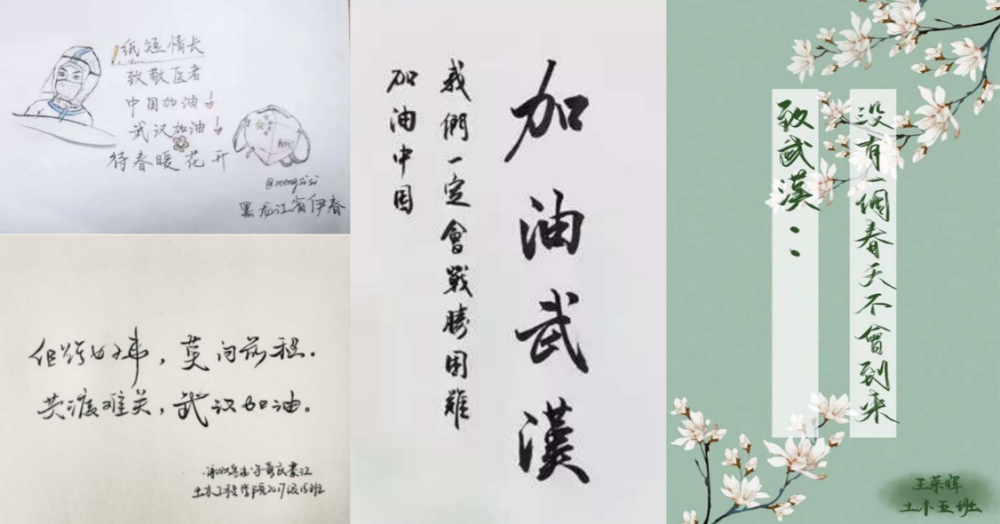 纸短情长
致敬医者
中国加油！
武汉加油！
待春暖花开
@mengsisi
黑龙江省伊春
但行好事，莫问前程。
共渡难关，武汉加油。
土木工程学院2017级15班
加油武漢
我們一定會戰勝困難
加油中国
致武漢：
没有一個春天不會到来
土木五班